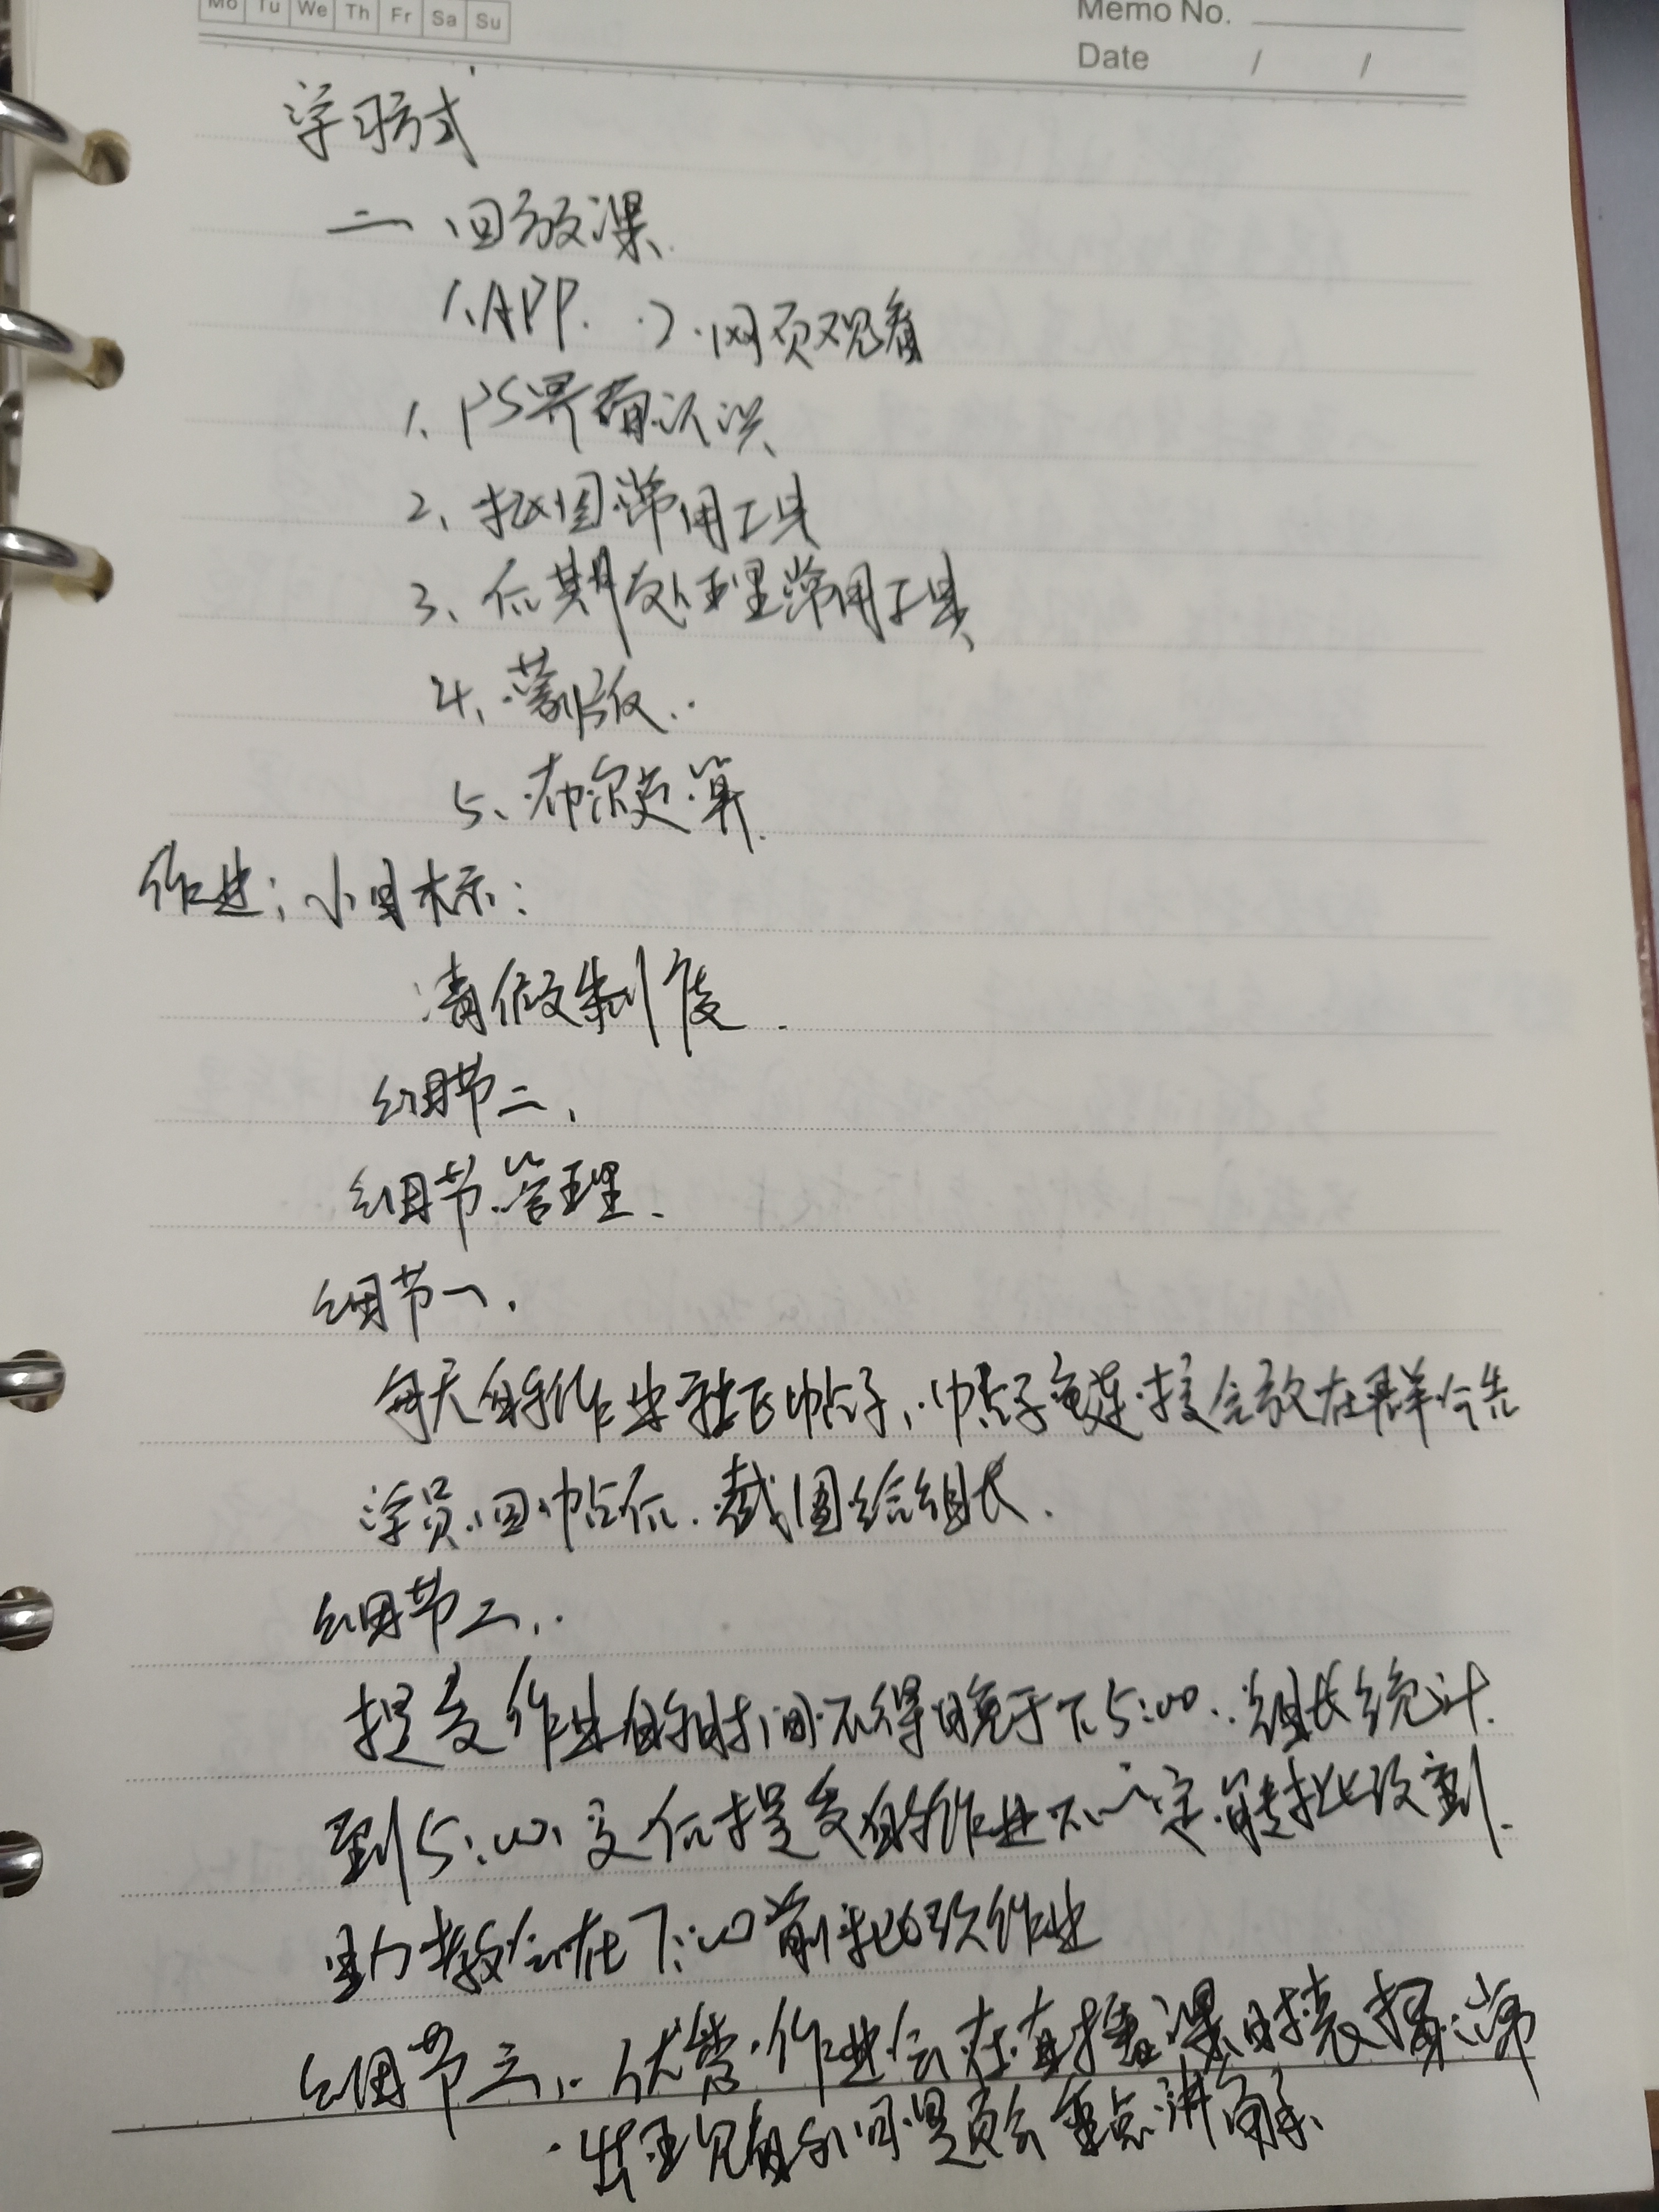 Mo Tu We Th Fr Sa Su
Memo No.
Date / /
学习方式
二 回放课
1、APP. 2.网页观看
1、PS界面认识
2、抠图常用工具
3、后期处理常用工具
4、蒙版..
5、布尔运算
作业: 小目标:
请假制度.
细节二、
细节管理.
细节一、
每天的作业社区帖子,帖子连接会放在群公告
学员回帖后.截图给组长.
细节二、.
提交作业的时间不得晚于下5:00..组长统计.
到5:00、交后提交的作业不一定能批改到.
助教会在7:00前批改作业
细节三、.优秀作业会在直播课时表扬
出现的问题会重点讲解